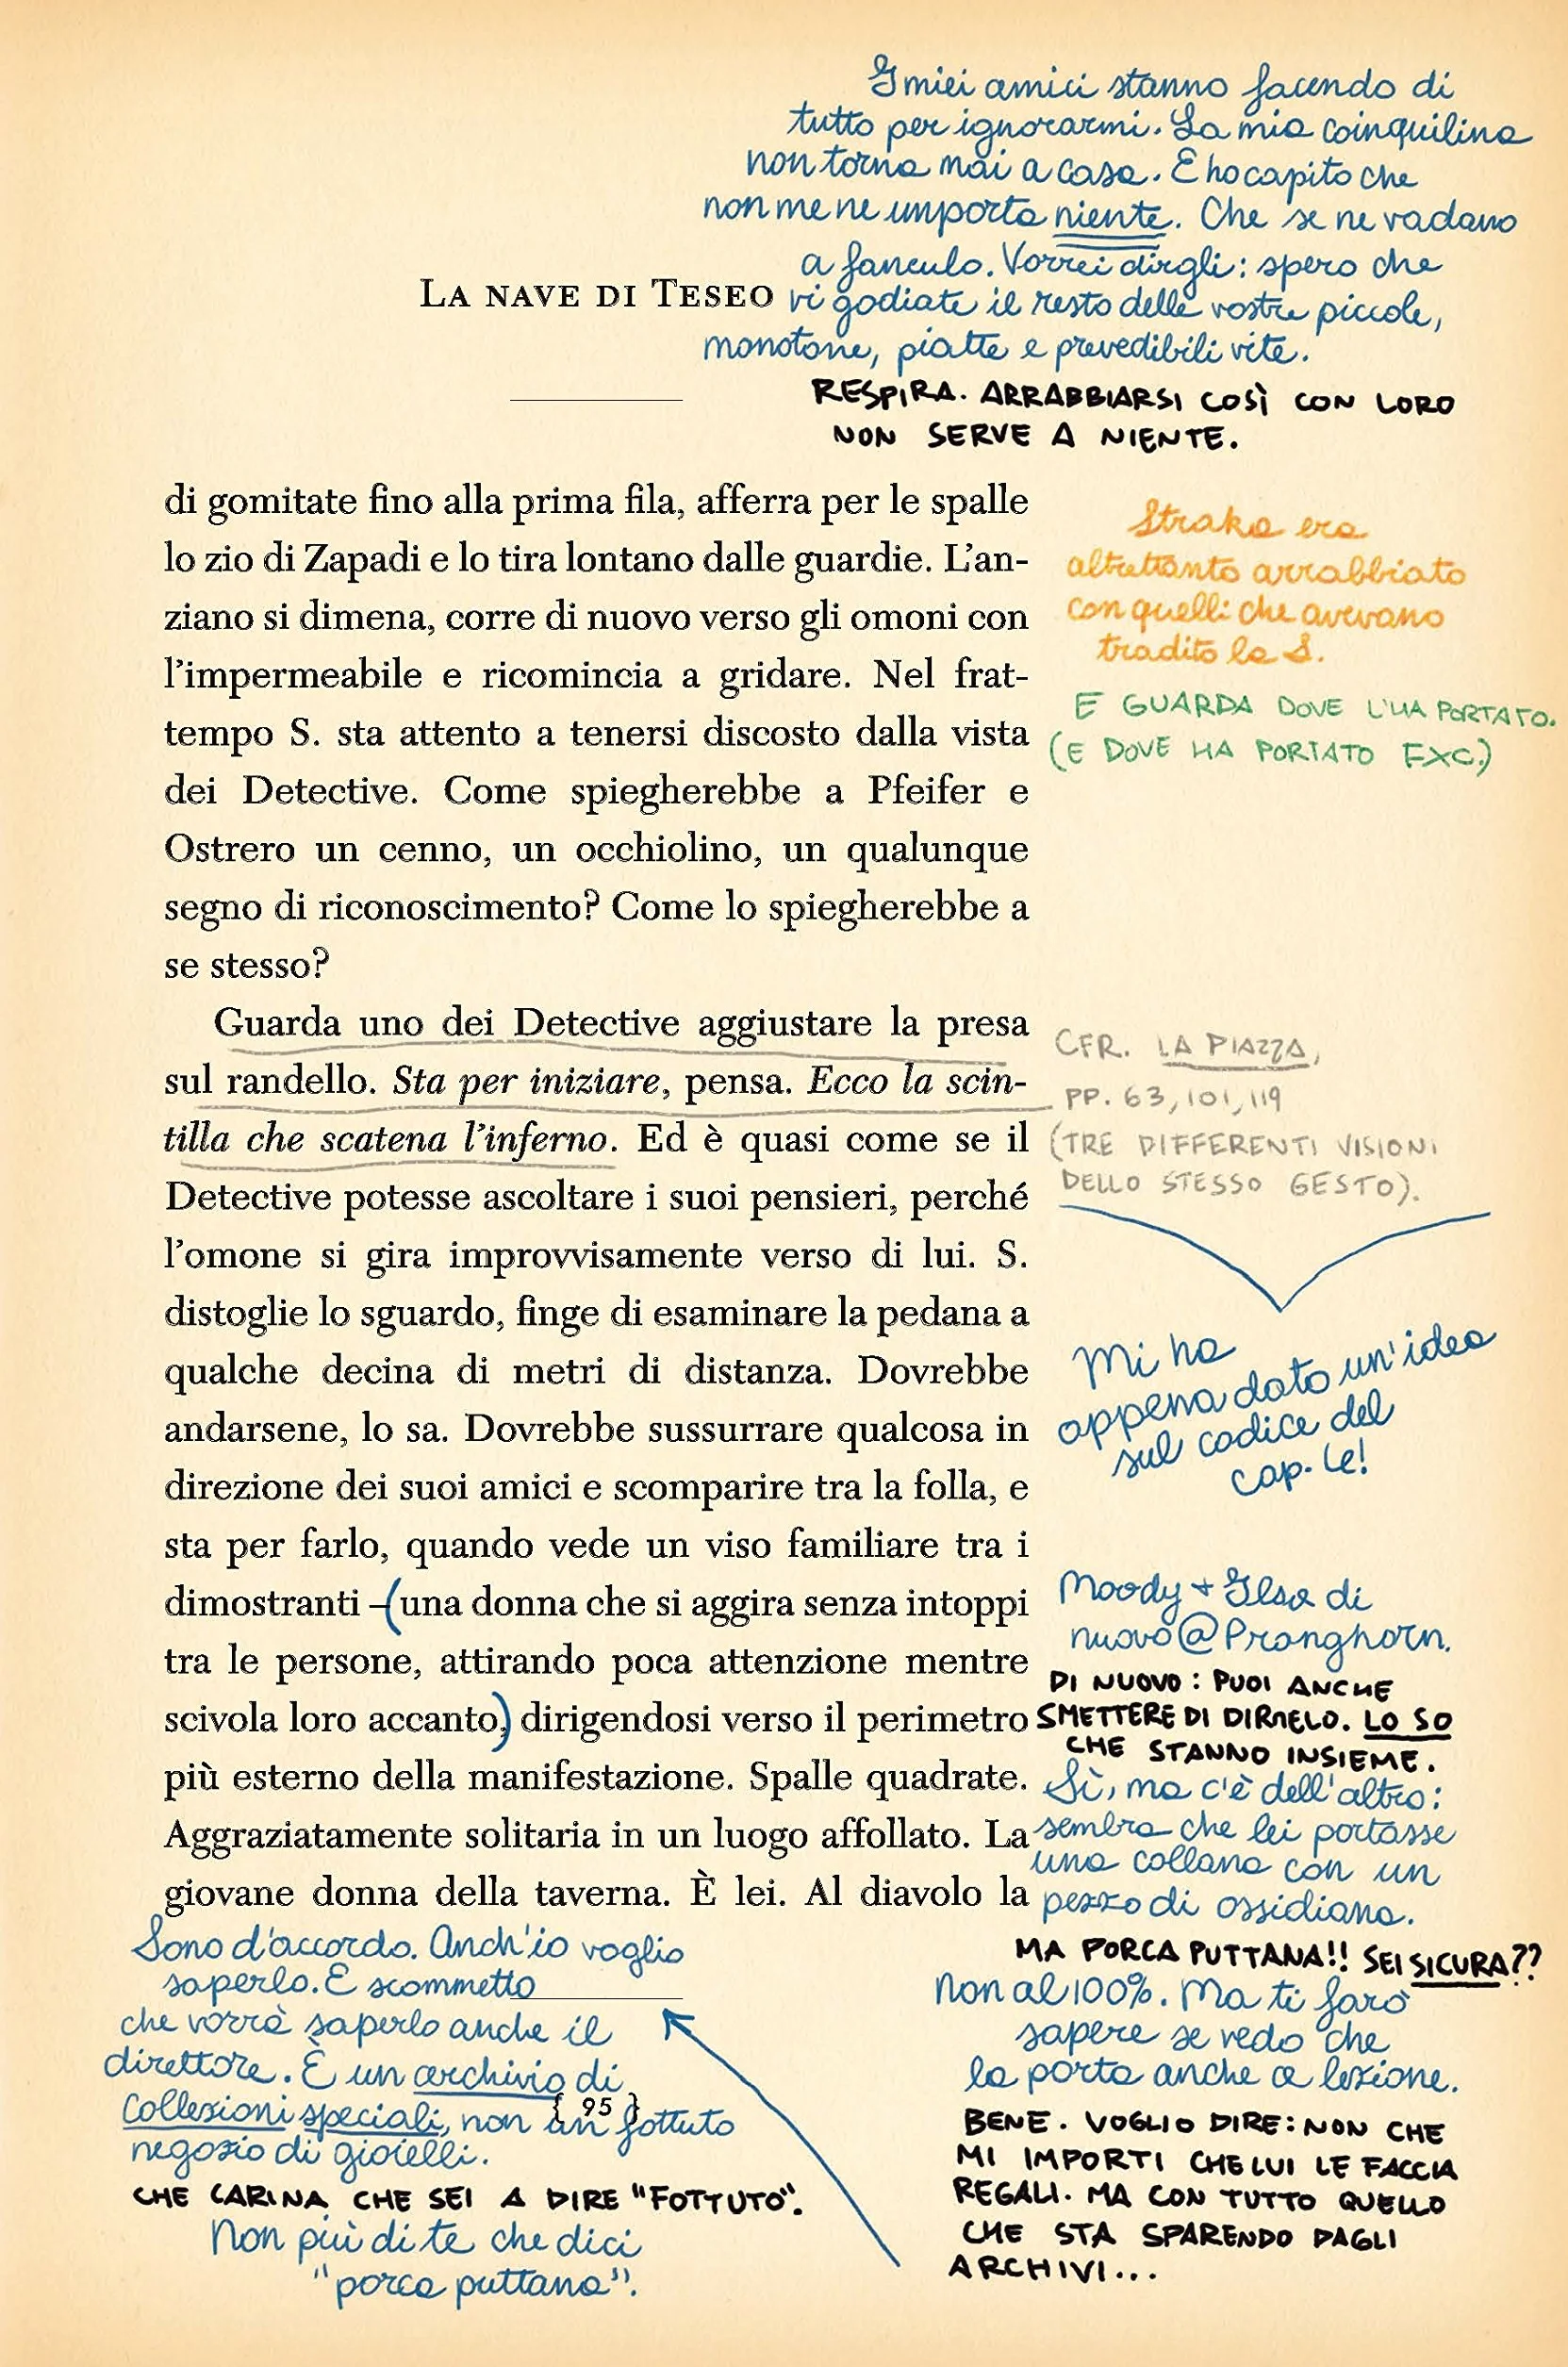 I miei amici stanno facendo di
tutto per ignorarmi. La mia coinquilina
non torna mai a casa. E ho capito che
non me ne importa niente. Che se ne vadano
a fanculo. Vorrei dirgli: spero che
vi godiate il resto delle vostre piccole,
monotone, piatte e prevedibili vite.
RESPIRA. ARRABBIARSI COSÌ CON LORO
NON SERVE A NIENTE.
LA NAVE DI TESEO
di gomitate fino alla prima fila, afferra per le spalle
lo zio di Zapadi e lo tira lontano dalle guardie. L'an-
ziano si dimena, corre di nuovo verso gli omoni con
l'impermeabile e ricomincia a gridare. Nel frat-
tempo S. sta attento a tenersi discosto dalla vista
dei Detective. Come spiegherebbe a Pfeifer e
Ostrero un cenno, un occhiolino, un qualunque
segno di riconoscimento? Come lo spiegherebbe a
se stesso?
Guarda uno dei Detective aggiustare la presa
sul randello. Sta per iniziare, pensa. Ecco la scin-
tilla che scatena l'inferno. Ed è quasi come se il
Detective potesse ascoltare i suoi pensieri, perché
l'omone si gira improvvisamente verso di lui. S.
distoglie lo sguardo, finge di esaminare la pedana a
qualche decina di metri di distanza. Dovrebbe
andarsene, lo sa. Dovrebbe sussurrare qualcosa in
direzione dei suoi amici e scomparire tra la folla, e
sta per farlo, quando vede un viso familiare tra i
dimostranti – (una donna che si aggira senza intoppi
tra le persone, attirando poca attenzione mentre
scivola loro accanto,) dirigendosi verso il perimetro
più esterno della manifestazione. Spalle quadrate.
Aggraziatamente solitaria in un luogo affollato. La
giovane donna della taverna. È lei. Al diavolo la
Straka era
altrettanto arrabbiato
con quelli che avevano
tradito la S.
E GUARDA DOVE L'HA PORTATO.
(E DOVE HA PORTATO FXC.)
CFR. LA PIAZZA,
PP. 63, 101, 119
(TRE DIFFERENTI VISIONI
DELLO STESSO GESTO).
Mi ha
appena dato un'idea
sul codice del
cap. 6!
Moody + Ilsa di
nuovo @ Pronghorn.
DI NUOVO: PUOI ANCHE
SMETTERE DI DIRMELO. LO SO
CHE STANNO INSIEME.
Sì, ma c'è dell'altro:
sembra che lei portasse
una collana con un
pezzo di ossidiana.
MA PORCA PUTTANA!! SEI SICURA??
Non al 100%. Ma ti farò
sapere se vedo che
la porta anche a lezione.
BENE. VOGLIO DIRE: NON CHE
MI IMPORTI CHE LUI LE FACCIA
REGALI. MA CON TUTTO QUELLO
CHE STA SPARENDO DAGLI
ARCHIVI...
Sono d'accordo. Anch'io voglio
saperlo. E scommetto
che vorrà saperlo anche il
direttore. È un archivio di
collezioni speciali, non un fottuto
negozio di gioielli.
CHE CARINA CHE SEI A DIRE "FOTTUTO".
Non più di te che dici
"porca puttana".
{ 95 }